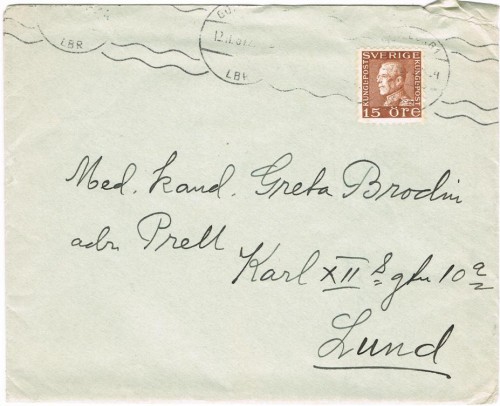 LBR
LBR
SVERIGE
KUNGL.POST
KUNGL.POST
15 ÖRE
Med. kand. Greta Brodin
adr. Prell
Karl XII s gtn 10 a
Lund